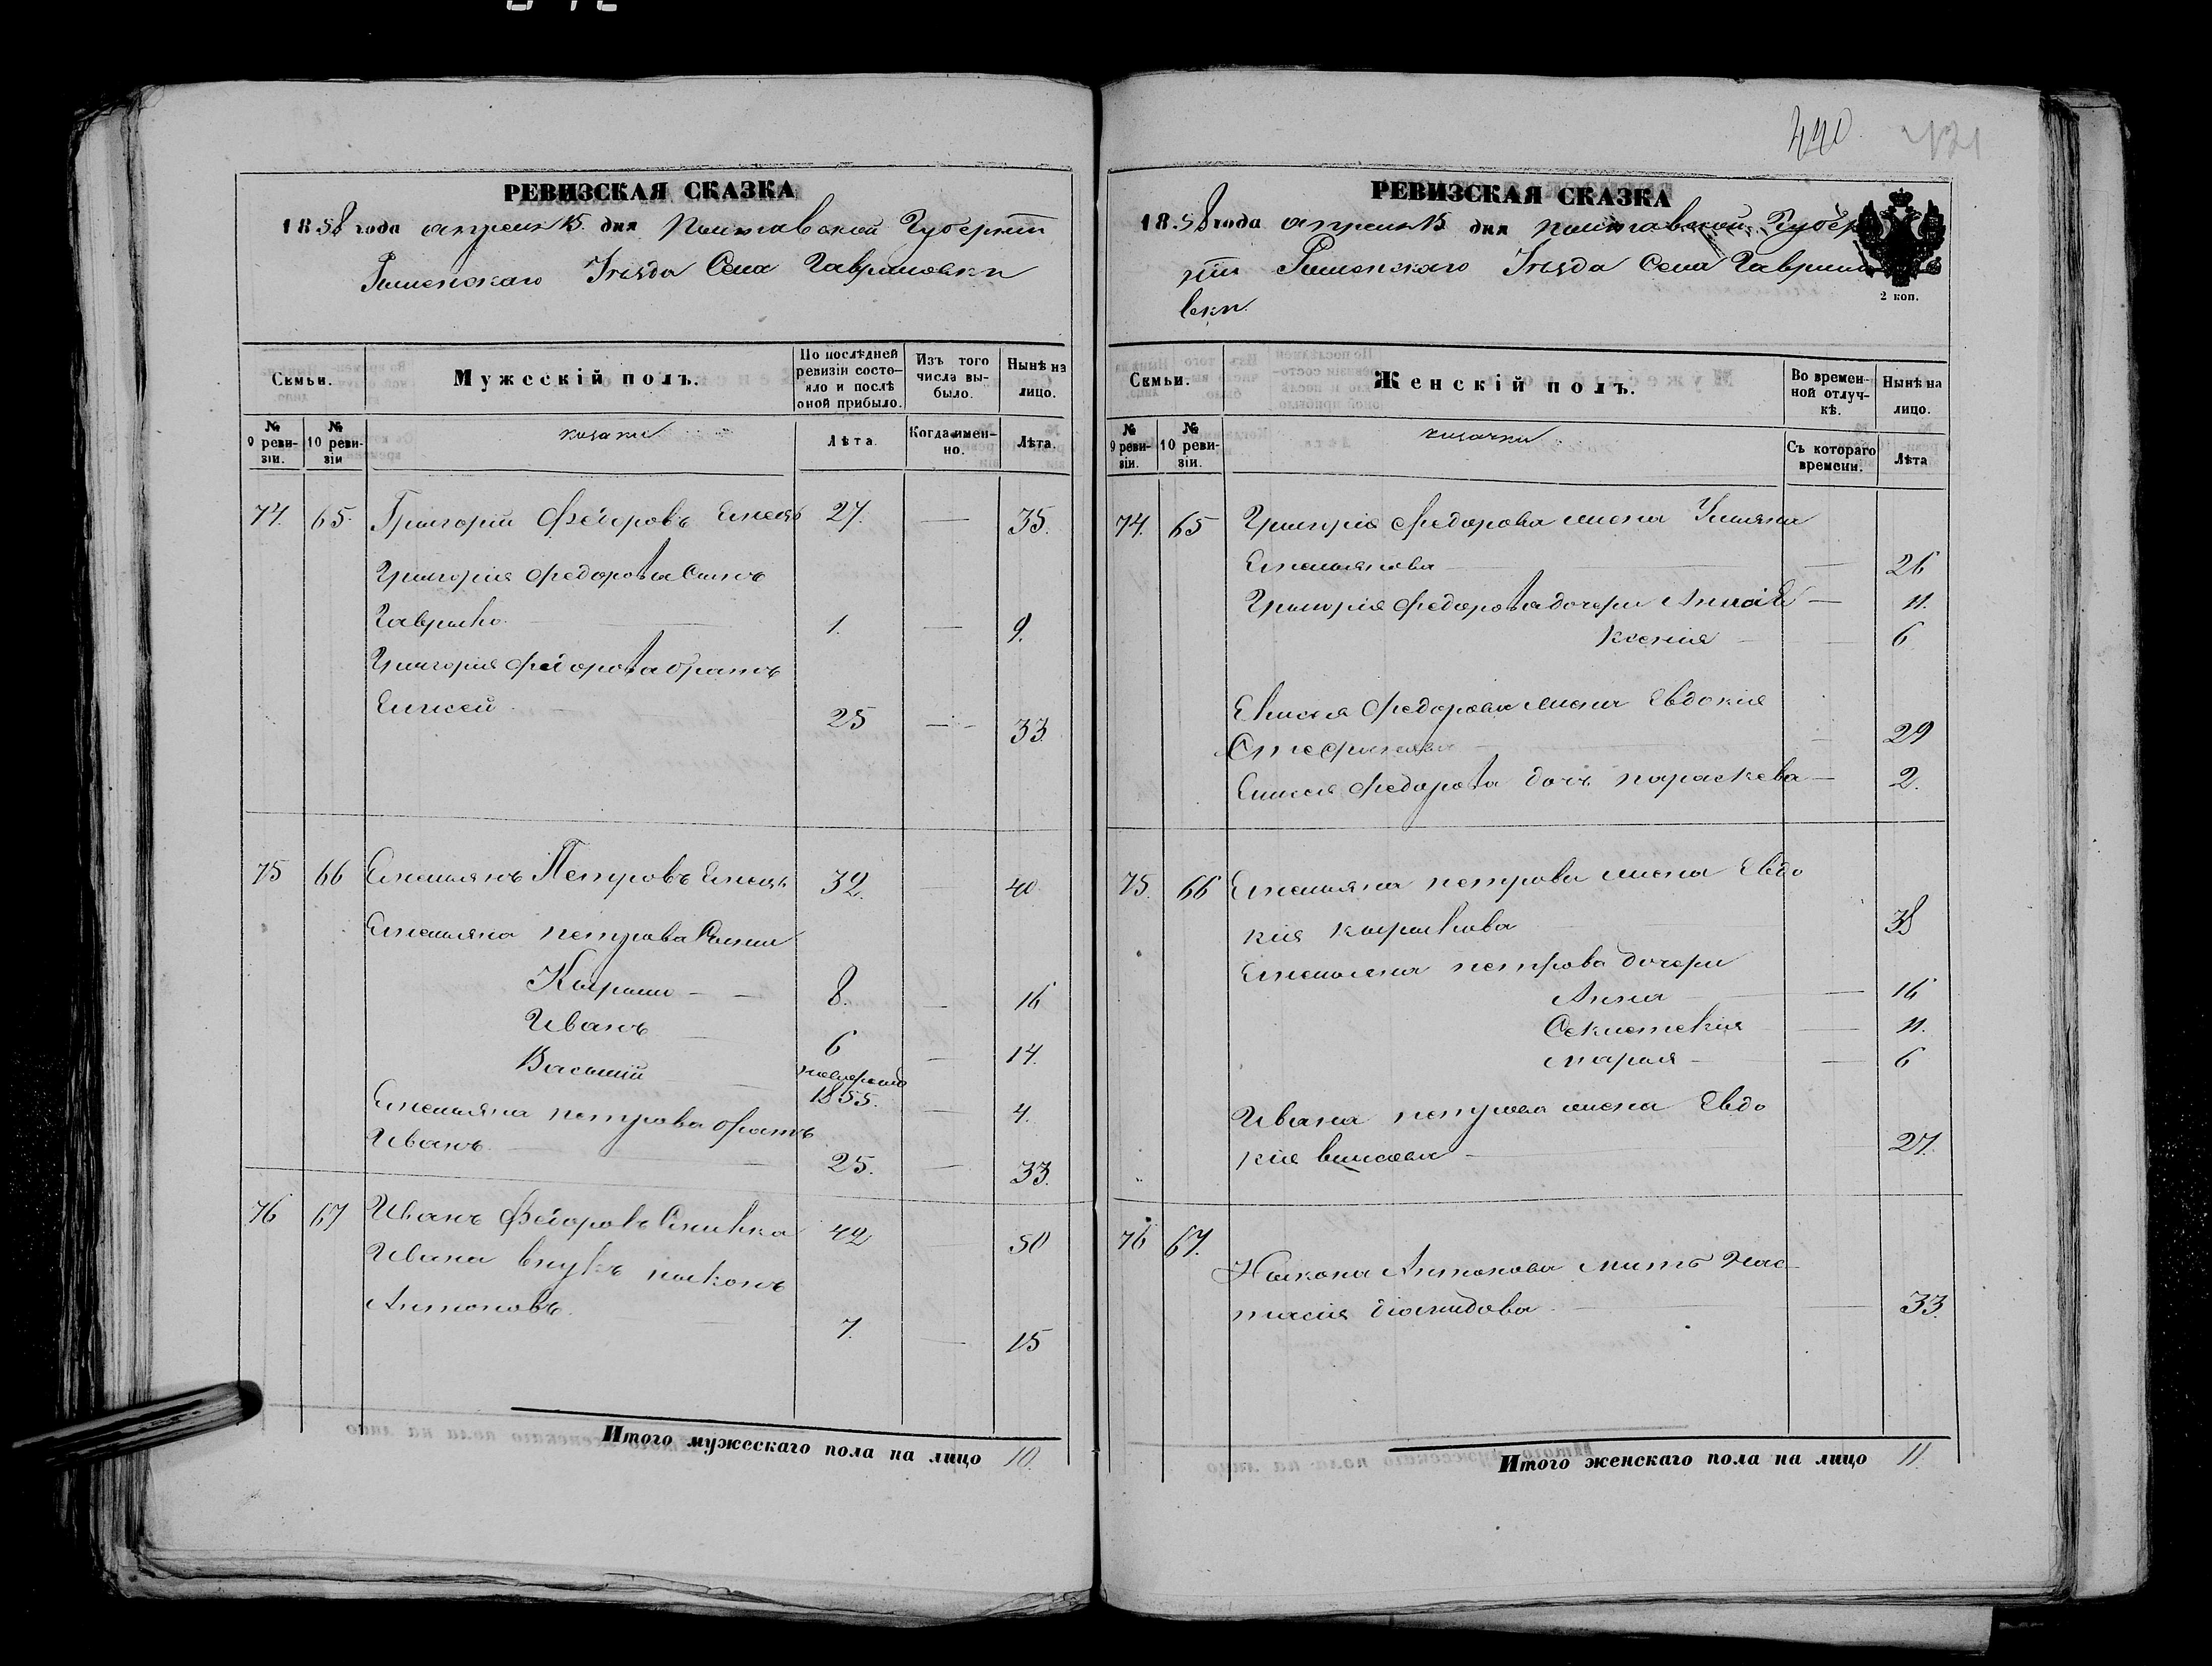 440
421
РЕВИЗСКАЯ СКАЗКА
1858 года апреля 15 дня Полтавской Губерніи
Роменскаго Уезда Села Гавриловки
Семьи.
Мужескій полъ.
По послѣдней ревизіи состояло и послѣ оной прибыло.
Изъ того числа выбыло.
Нынѣ на лицо.
№ 9 ревизіи.
№ 10 ревизіи
козаки
Лѣта.
Когда именно.
Лѣта.
74. 65. Григорій Федоровъ 27. — 35.
Григорія Федорова Сынъ
Гаврило 1. — 9.
Григорія Федорова братъ
Елисей 25 — 33.
75 66 Емельянъ Петровъ 32. 40.
Емельяна Петрова Сыны
Кирило — 8. — 16
Иванъ 6 — 14.
Василій
1855. — 4.
Емельяна Петрова братъ
Иванъ. 25. — 33.
76 67 Иванъ Федоровъ 42 50
Ивана внукъ
Антоновъ. 7. — 15
Итого мужескаго пола на лицо 10.
РЕВИЗСКАЯ СКАЗКА
1858 года апреля 15 дня Полтавской Губер
ніи Роменскаго Уезда Села Гаврило
вки.
2 коп.
Семьи.
Женскій полъ.
Во временной отлучкѣ.
Нынѣ на лицо.
№ 9 ревизіи.
№ 10 ревизіи.
козачки
Съ котораго времени.
Лѣта
74. 65 Григорія Федорова жена Ульяна
Емельянова — 26
Григорія Федорова дочери Анна — 11.
Ксенія — 6
Елисея Федорова жена Евдокія
Стефанова — 29
Елисея Федорова дочь Параскева — 2.
75. 66 Емельяна Петрова жена Евдо
кія Кирилова 38
Емельяна Петрова дочери
Анна — 16
11.
Марія — 6
Ивана Петрова жена Евдо
кія 27.
76 67. Антонова мать Нас-
тасія 33.
Итого женскаго пола на лицо 11.